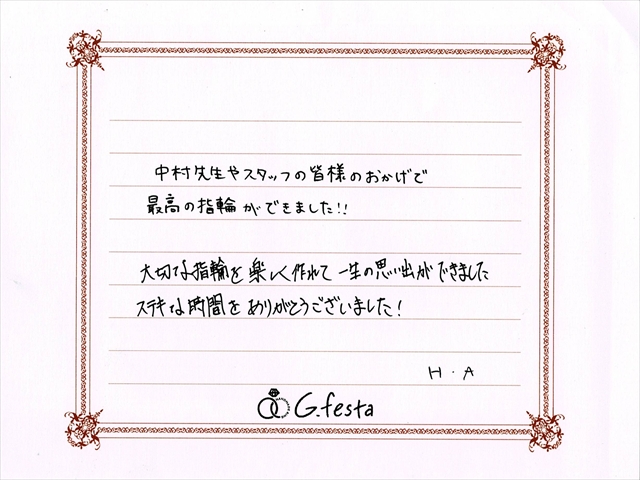 中村先生やスタッフの皆様のおかげで
最高の指輪ができました!!
大切な指輪を楽しく作れて一生の思い出ができました
ステキな時間をありがとうございました!
H.A
G.festa